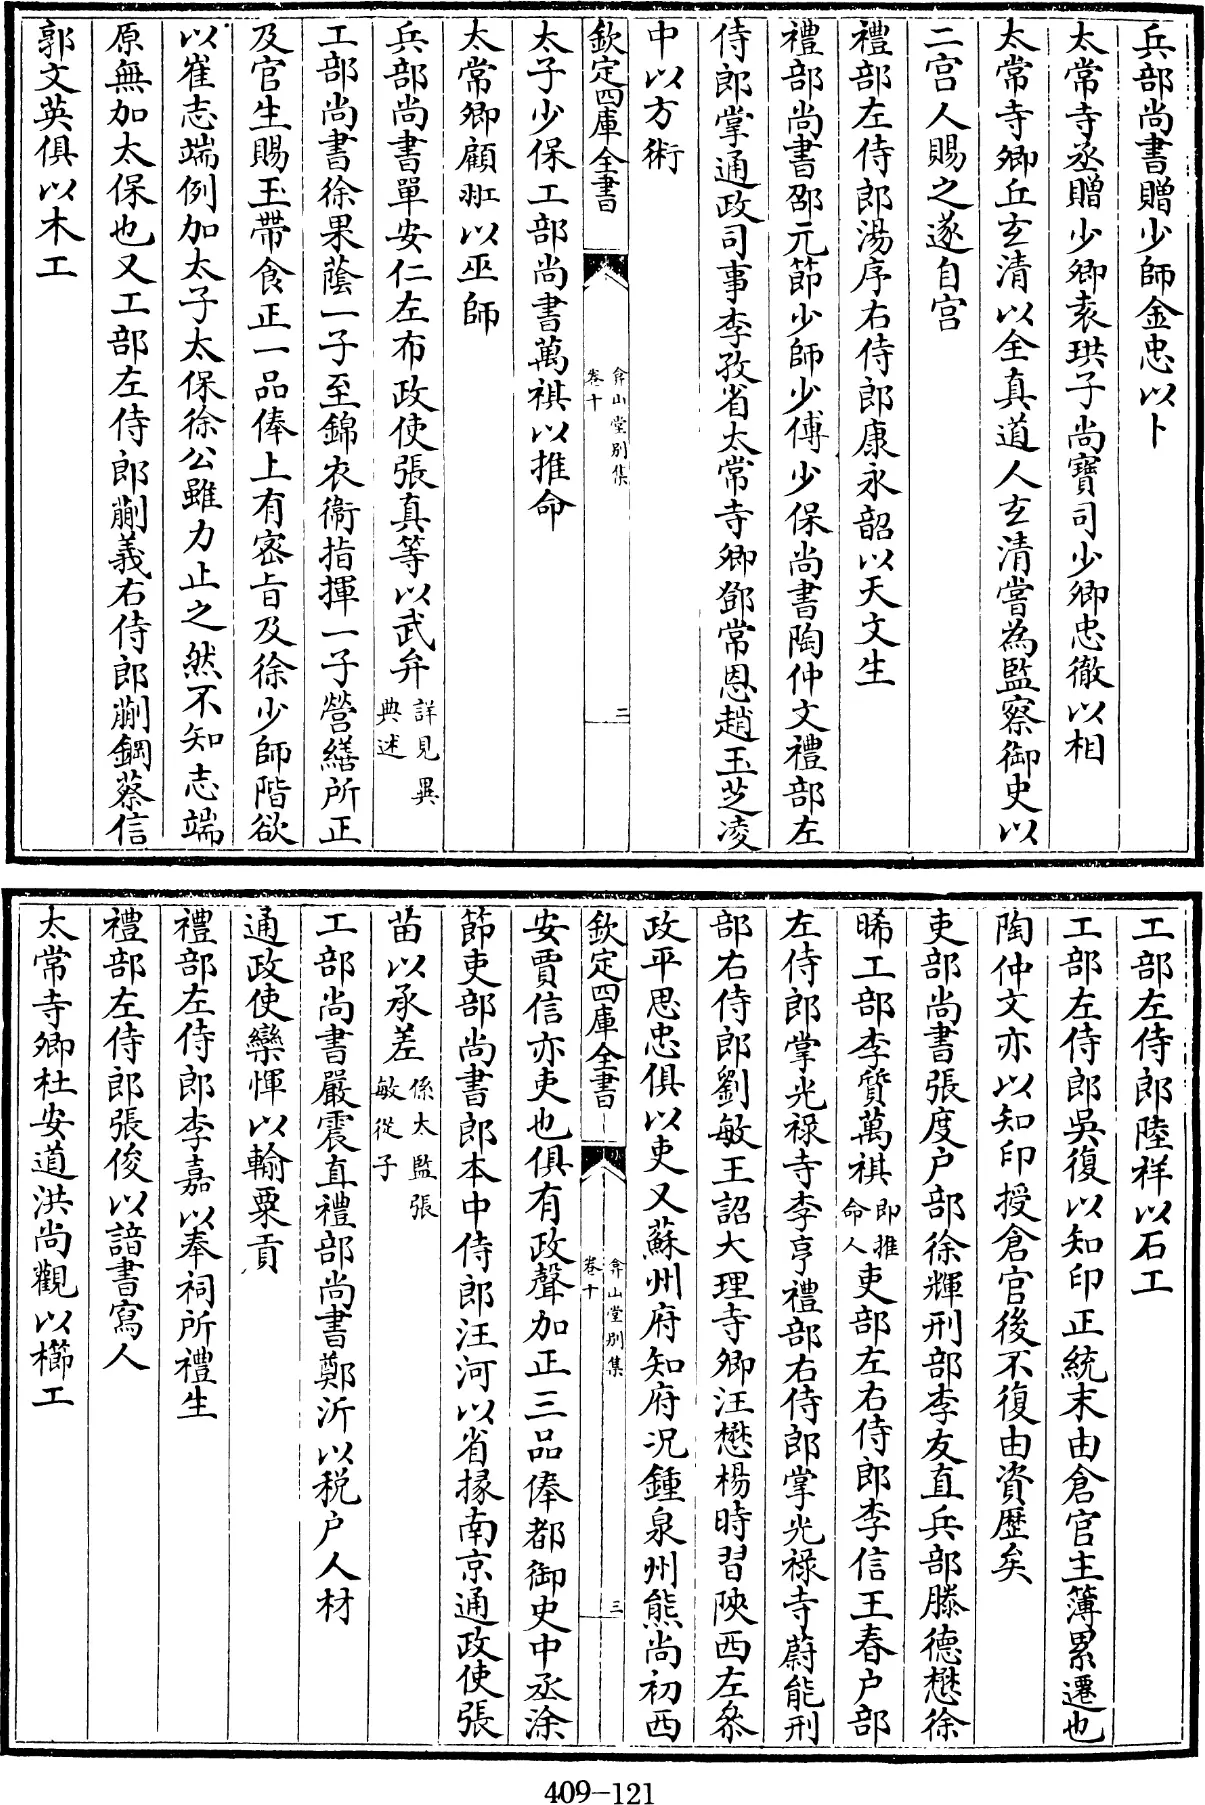 兵部尚書贈少師金忠以卜
太常寺丞贈少卿袁珙子尚寶司少卿忠徹以相
太常寺卿丘玄清以全真道人玄清嘗為監察御史以
二宫人賜之遂自宫
禮部左侍郎湯序右侍郎康永韶以天文生
禮部尚書邵元節少師少傅少保尚書陶仲文禮部左
侍郎掌通政司事李孜省太常寺卿鄧常恩趙玉芝凌
中以方術
欽定四庫全書
弇山堂别集
卷十
二
太子少保工部尚書萬祺以推命
太常卿顧玒以巫師
兵部尚書單安仁左布政使張真等以武弁
詳見異
典述
工部尚書徐杲蔭一子至錦衣衞指揮一子營繕所正
及官生賜玉帶食正一品俸上有密旨及徐少師階欲
以崔志端例加太子太保徐公雖力止之然不知志端
原無加太保也又工部左侍郎蒯義右侍郎蒯鋼蔡信
郭文英俱以木工
工部左侍郎陸祥以石工
工部左侍郎吳復以知印正統末由倉官主簿累遷也
陶仲文亦以知印授倉官後不復由資歴矣
吏部尚書張度户部徐輝刑部李友直兵部滕德懋徐
晞工部李質萬祺
即推
命人
吏部左右侍郎李信王春户部
左侍郎掌光禄寺李亨禮部右侍郎掌光禄寺蔚能刑
部右侍郎劉敏王詔大理寺卿汪懋楊時習陜西左叅
政平思忠俱以吏又蘇州府知府况鍾泉州熊尚初西
欽定四庫全書
弇山堂别集
卷十
三
安賈信亦吏也俱有政聲加正三品俸都御史中丞涂
節吏部尚書郎本中侍郎汪河以省掾南京通政使張
苗以承差
係太監張
敏從子
工部尚書嚴震直禮部尚書鄭沂以税户人材
通政使欒惲以輸粟貢
禮部左侍郎李嘉以奉祠所禮生
禮部左侍郎張俊以諳書寫人
太常寺卿杜安道洪尚觀以櫛工
409-121